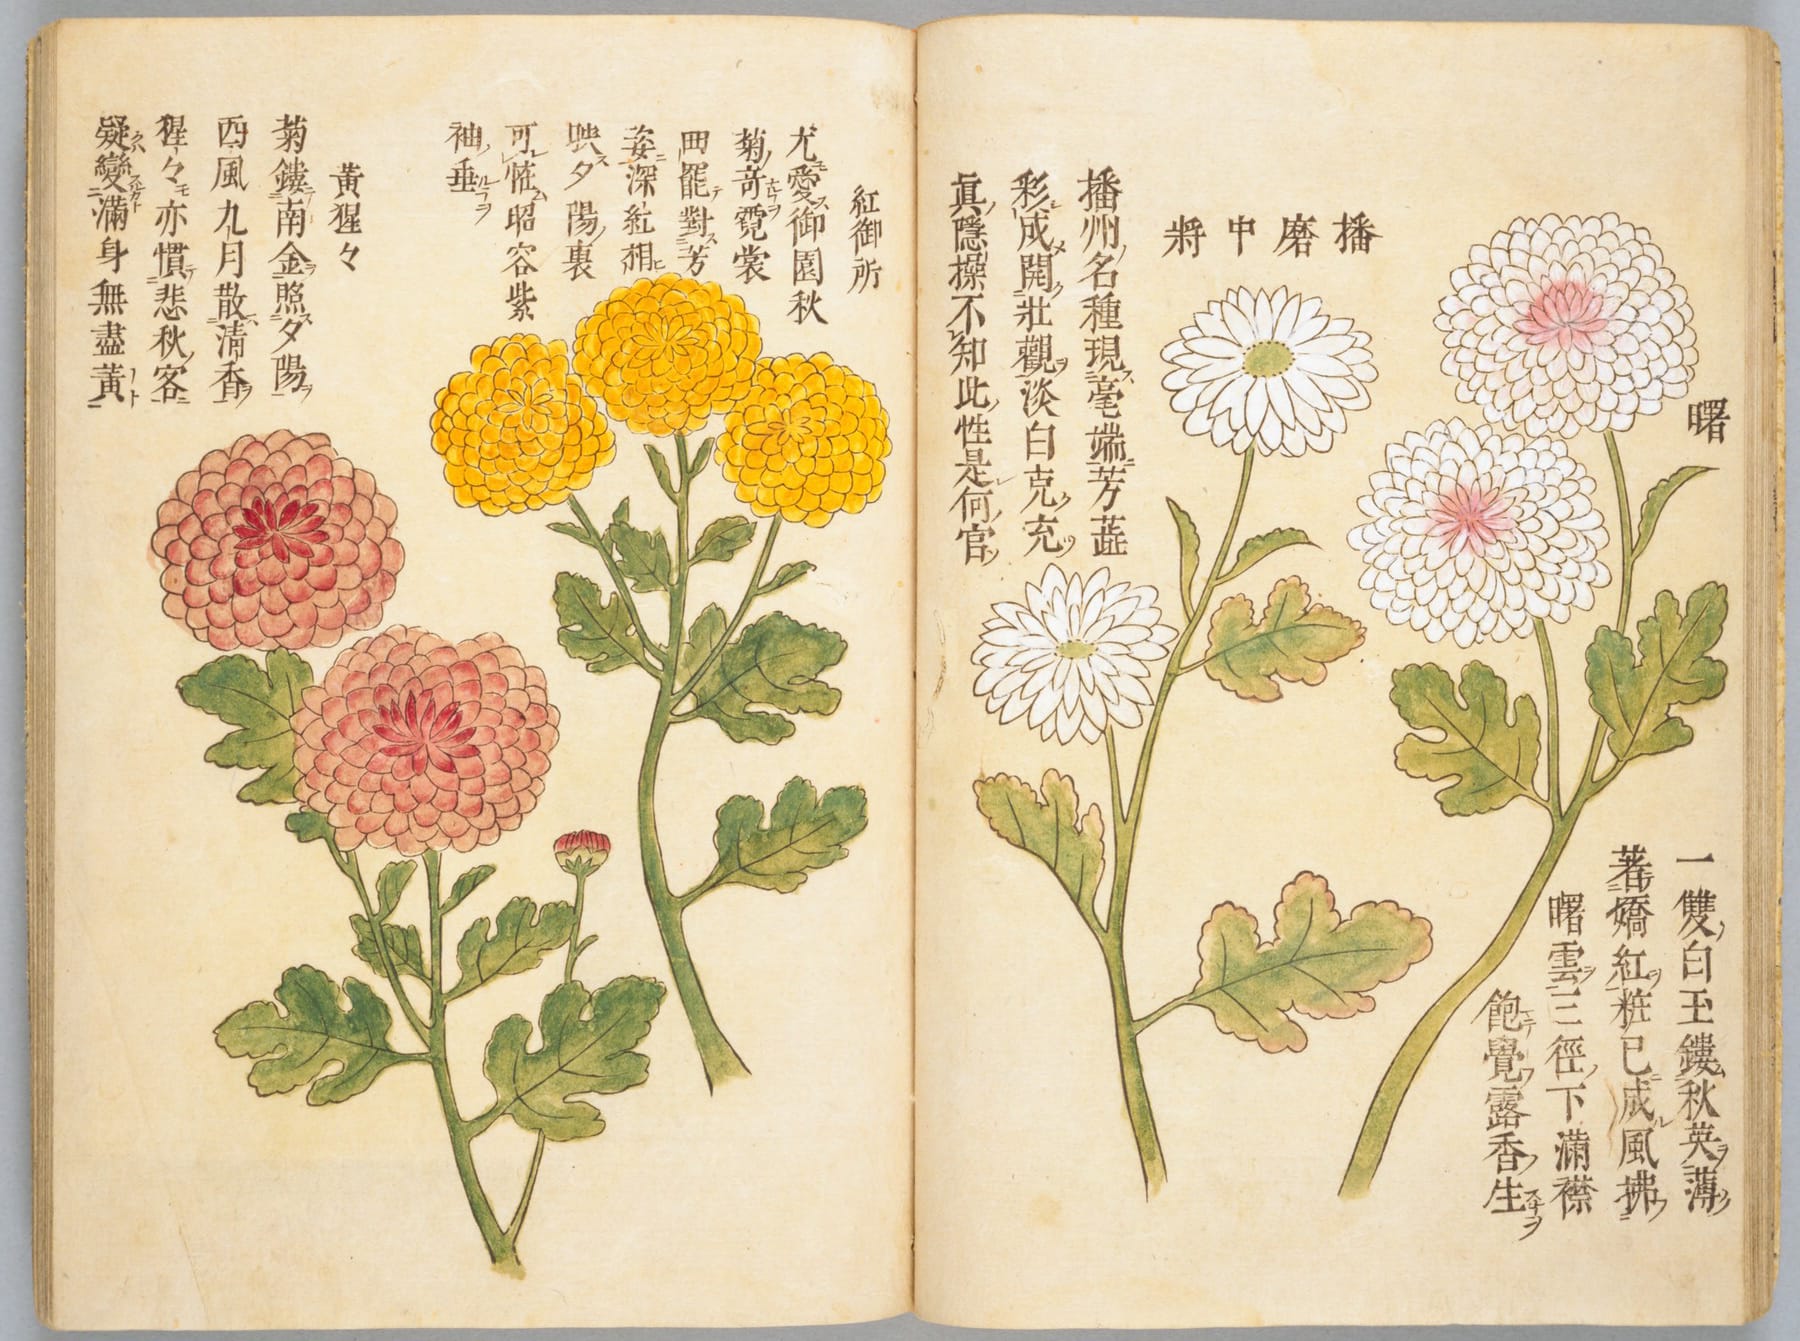 曙
一雙白玉鏤秋英薄
著嬌紅粧已成風拂
曙雲三徑下滿襟
飽覺露香生
播磨中將
播州名種現毫端芳蕋
彩成開壯觀淡白克充
眞隱操不知此性是何官
紅御所
尤愛御園秋
菊奇霓裳
曲罷對芳
姿深紅相
映夕陽裏
可恠昭容紫
袖垂
黃猩々
菊鏤南金照夕陽
西風九月散清香
猩々亦慣悲秋客
疑變滿身無盡黃